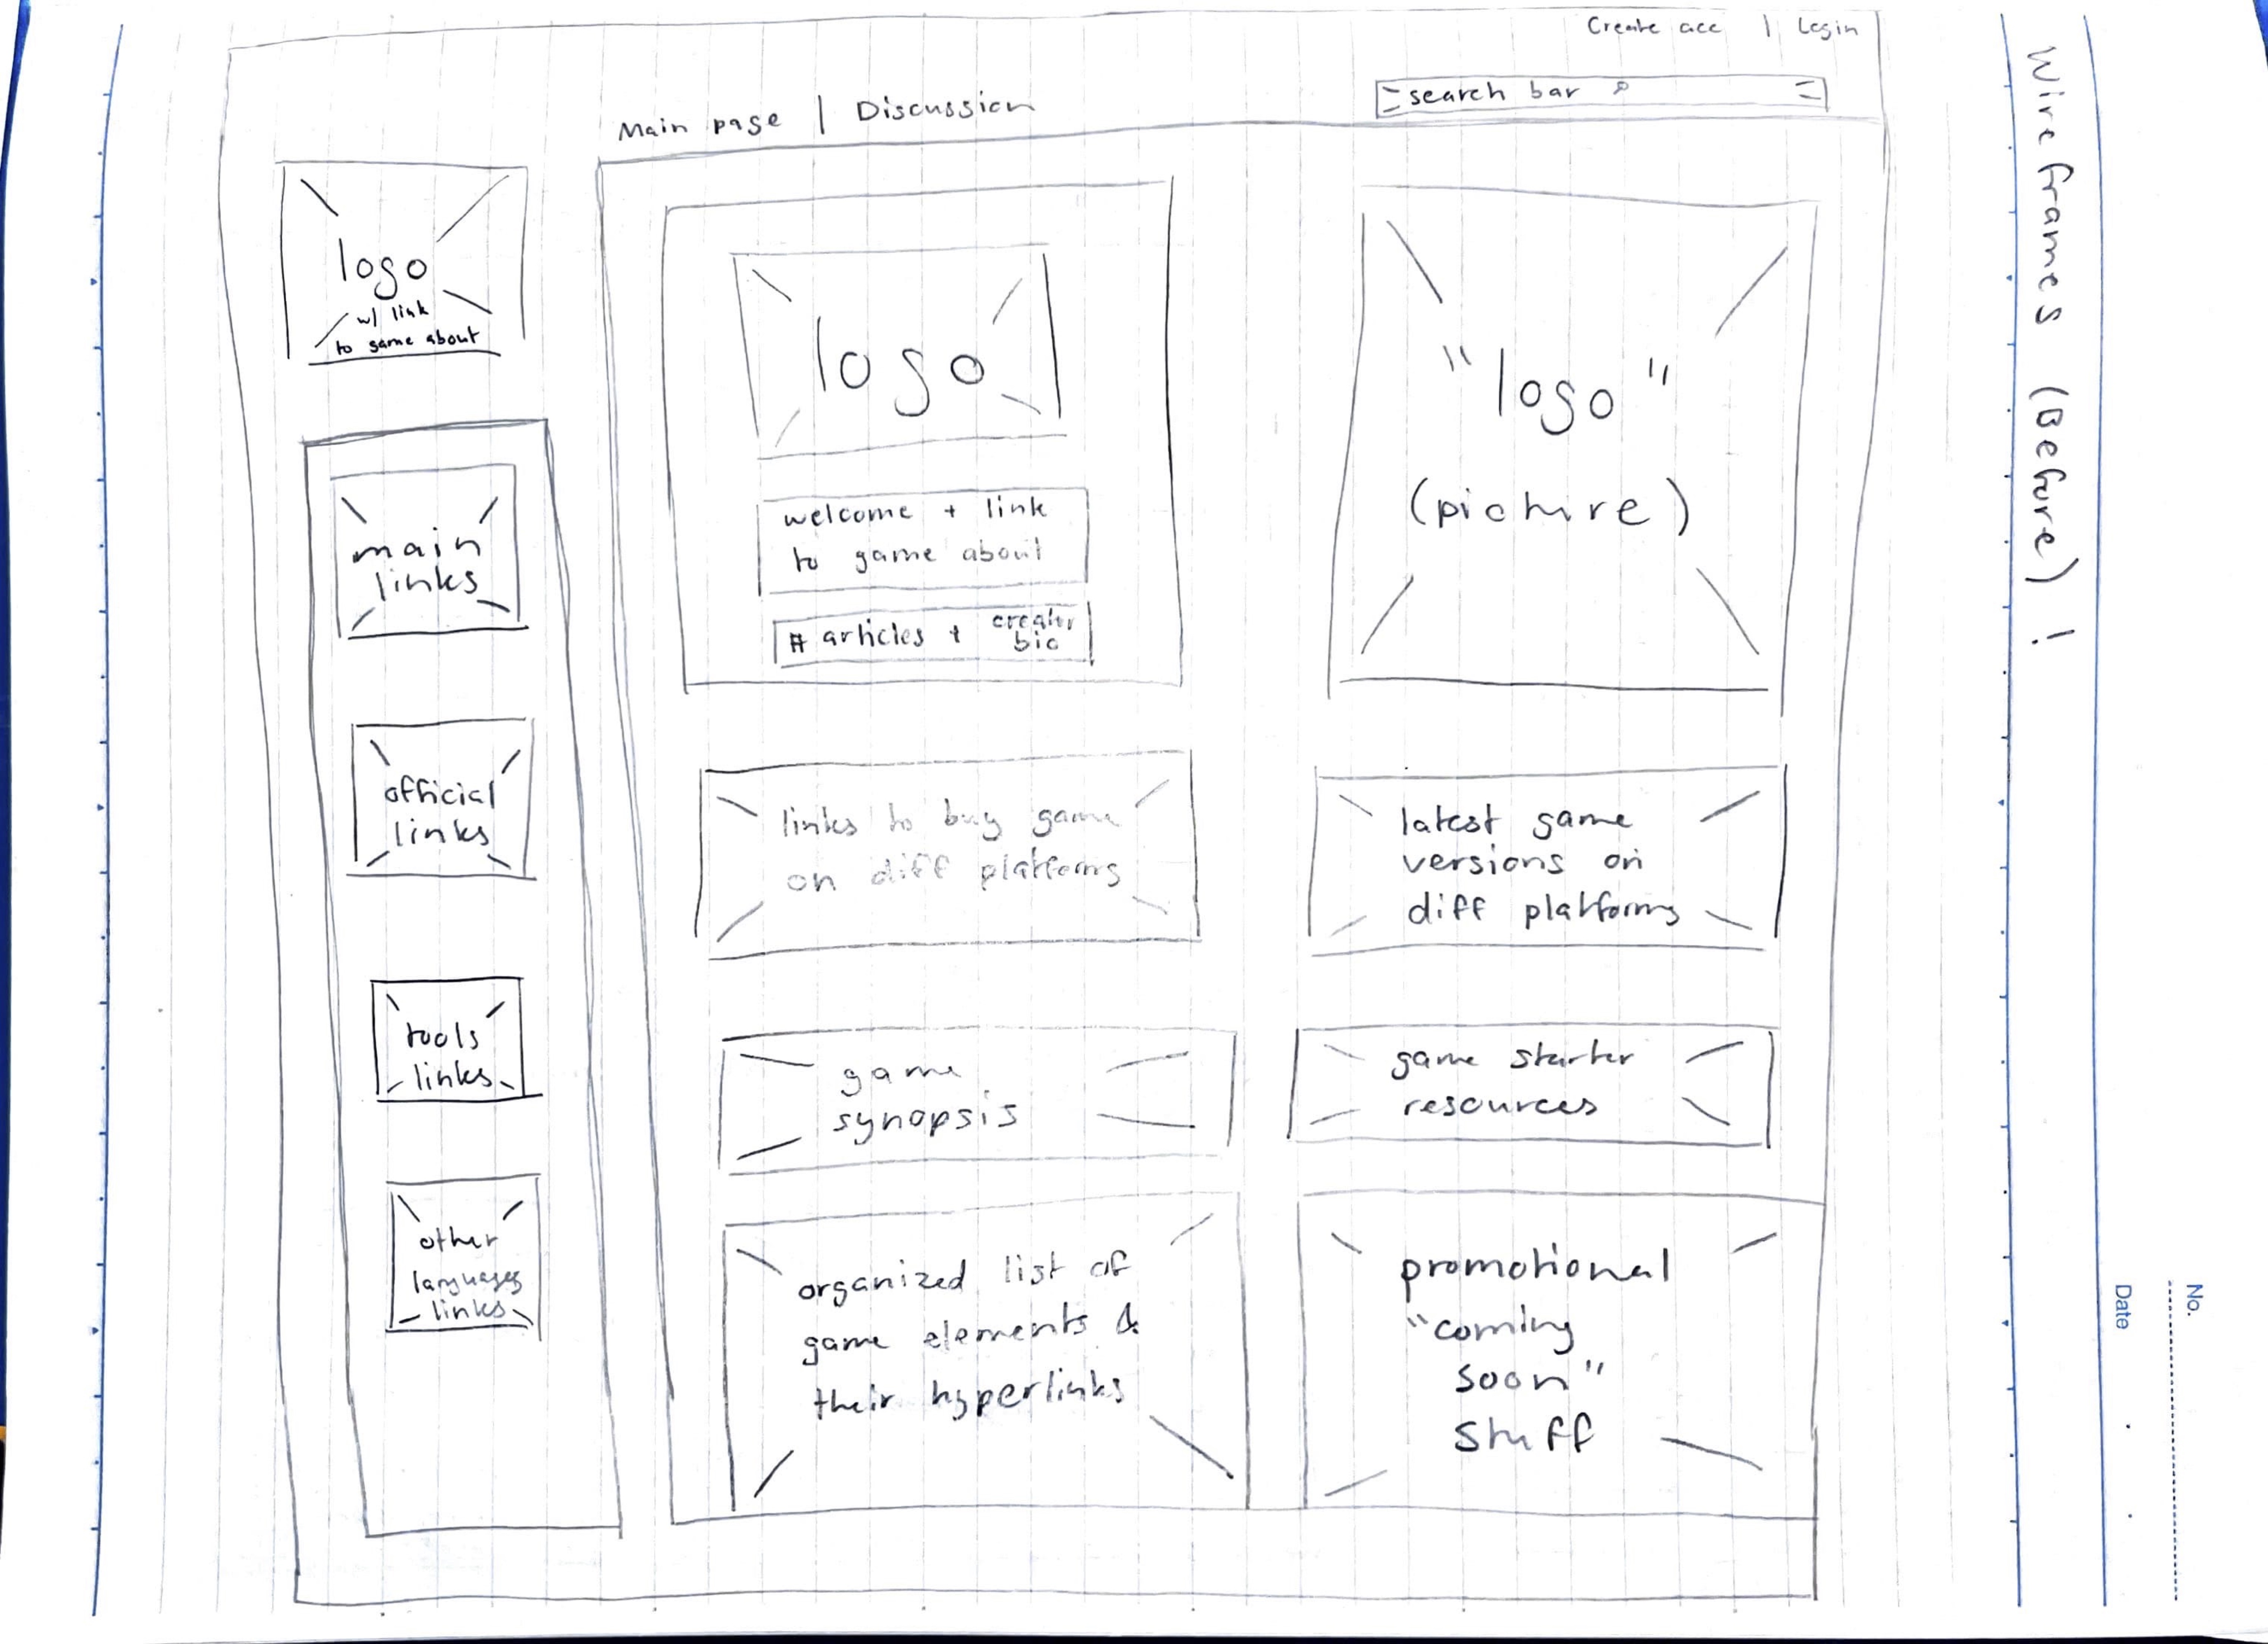 Create acc | Login
Main page | Discussion
search bar
logo
w/ link
to game about
main
links
official
links
tools
links
other
languages
links
logo
welcome + link
to game about
# articles + creator
bio
"logo"
(picture)
links to buy game
on diff platforms
latest game
versions on
diff platforms
game
synopsis
game starter
resources
organized list of
game elements &
their hyperlinks
promotional
"coming
soon"
stuff
Wireframes (Before) !
No.
Date